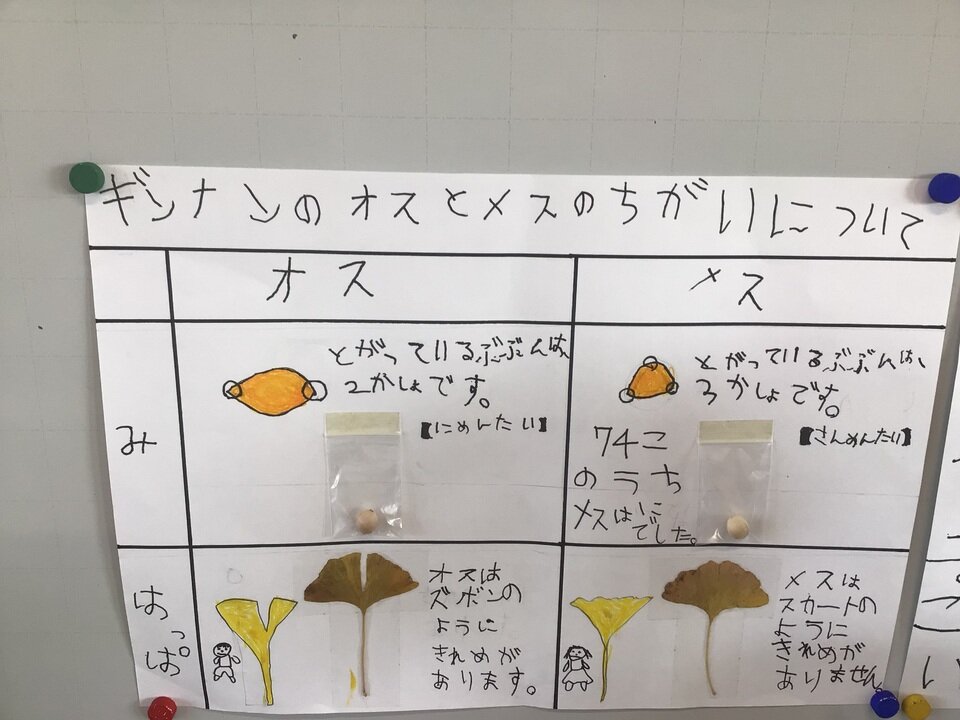 ギンナンのオスとメスのちがいについて
オス
メス
み
とがっているぶぶんは、
2かしょです。
【にめんたい】
とがっているぶぶんは、
3かしょです。
【さんめんたい】
74こ
のうち
メスは1こ
でした。
はっぱ
オスは
ズボンの
ように
きれめが
あります。
メスは
スカートの
ように
きれめが
ありません。